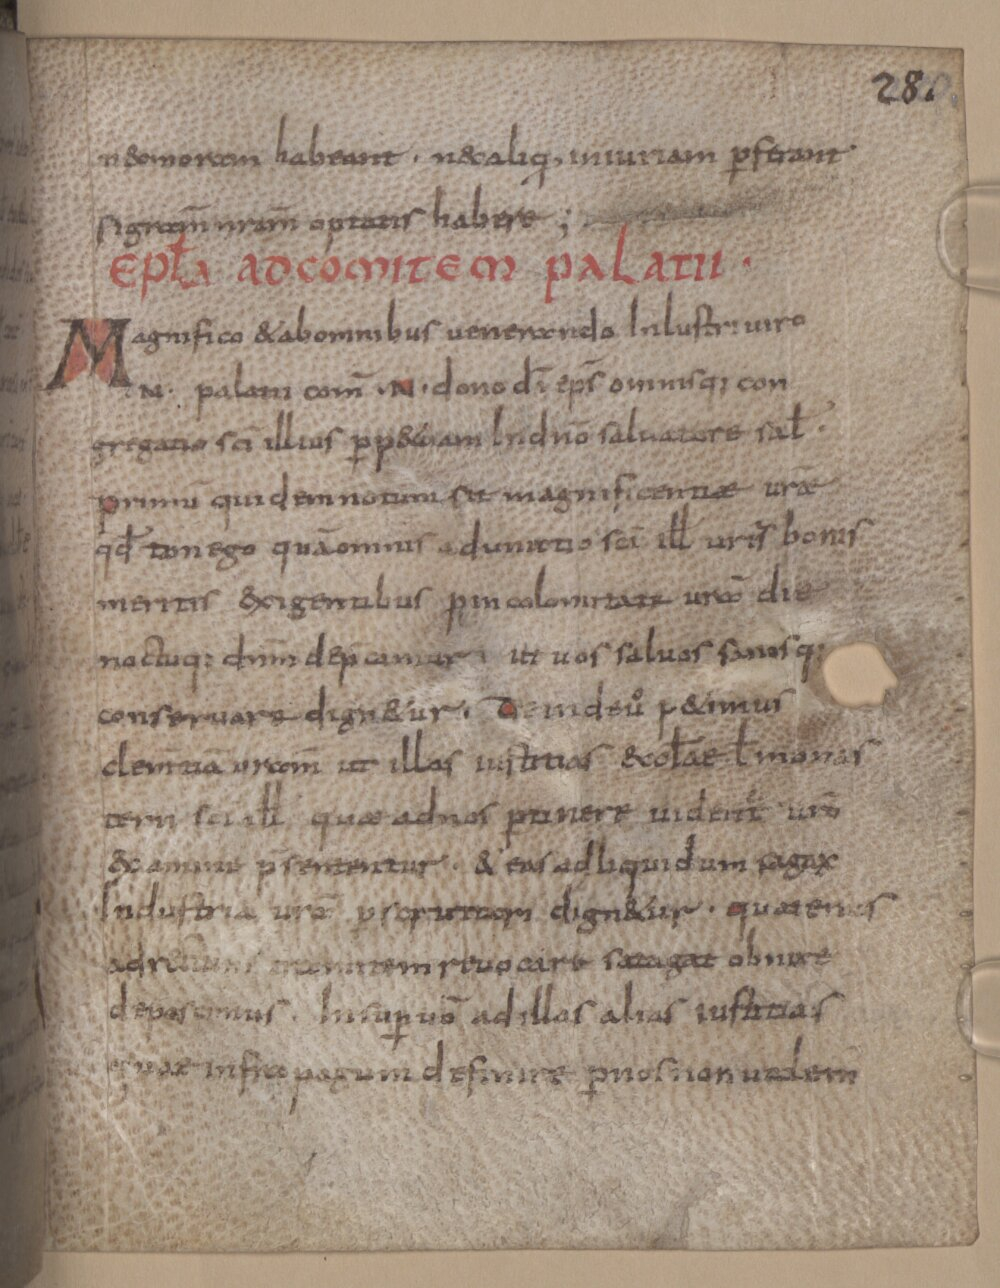 28.
n&omoram habeant · n&aliq, iniuriam ꝑferant
si gratiā nrām optatis habere ;
EPLA ADCOMITEM PALATII ·
Magnifico &abomnibus uenerando Inlustri uiro
.N. palatii com̄ · N · dono dī ep̄s omnisq; con
gregatio sc̄i illius ꝑp&uam Indn̄o saluatore sal̄ ·
primū quidem notum sit magnificentiae ur̄ae
qd̄ tam ego quā omnis adunatio sc̄i ill uris̄ bonis
meritis &xigentibus ꝓ incolomitate urā die
noctuq; dn̄m dep̄camur · ut uos saluos sanosq;
conseruare dign&ur · Deinde uº p&imus
clem̄tiā urām ut illas iustitias &cl̄ae l̄ monas
terii sc̄i ill quae ad nos ꝑtinere uident̄ urō
&xamine p̄sententur · & eas ad liquidum sagax
Industria urā ꝑscrutari dign&ur · quatenus
adr&tum tramitem reuocare satagat obnixe
deposcimus · Insuꝑ uō ad illas alias iustitias
quae infra pagum definire ꝑ nos non ualem̄